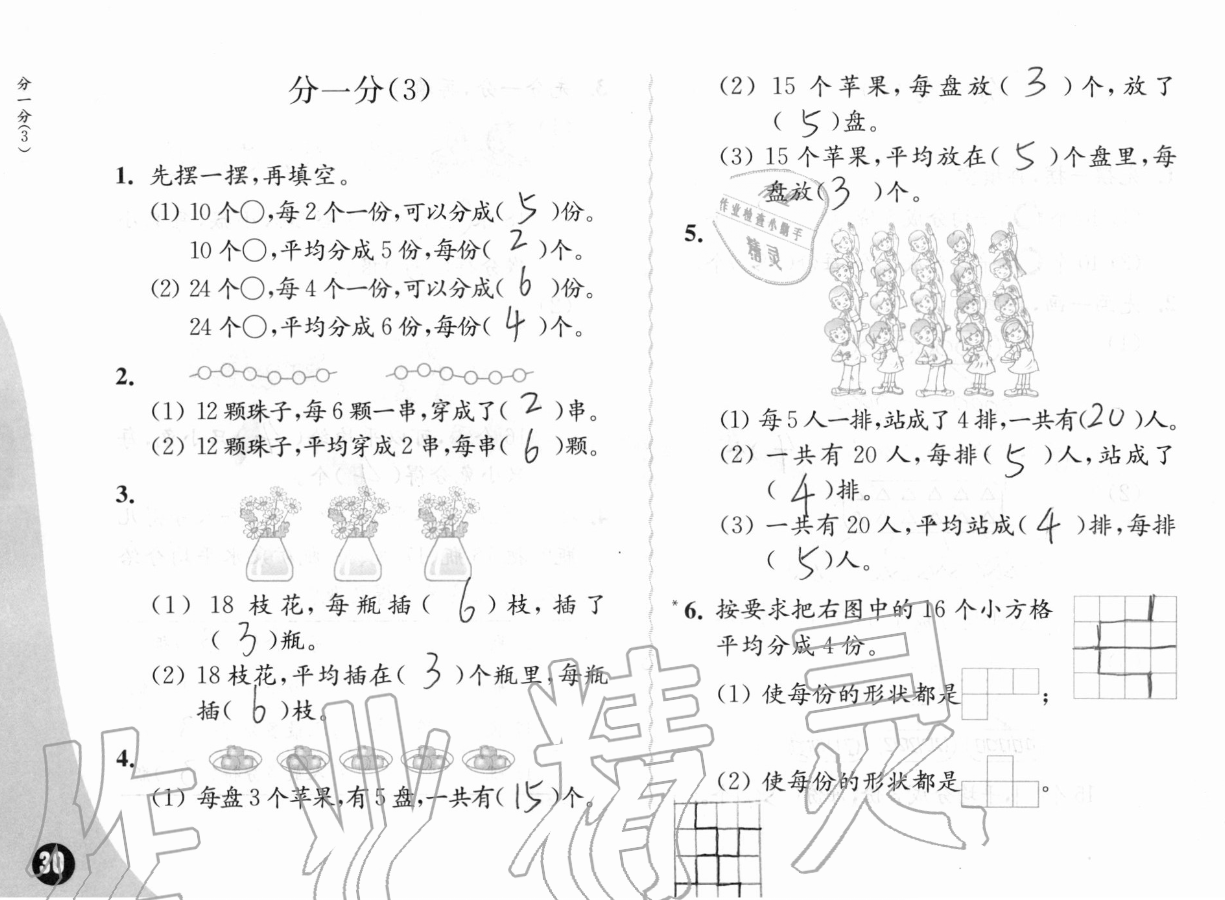 分一分(3)
分一分(3)
1. 先摆一摆,再填空。
(1) 10个○,每2个一份,可以分成( 5 )份。
10个○,平均分成5份,每份( 2 )个。
(2) 24个○,每4个一份,可以分成( 6 )份。
24个○,平均分成6份,每份( 4 )个。
2.
(1) 12颗珠子,每6颗一串,穿成了( 2 )串。
(2) 12颗珠子,平均穿成2串,每串( 6 )颗。
3.
(1) 18 枝花,每瓶插( 6 )枝,插了
( 3 )瓶。
(2) 18枝花,平均插在( 3 )个瓶里,每瓶
插( 6 )枝。
4.
(1) 每盘3个苹果,有5盘,一共有( 15 )个。
30
(2) 15 个苹果,每盘放( 3 )个,放了
( 5 )盘。
(3) 15个苹果,平均放在( 5 )个盘里,每
盘放( 3 )个。
作业检查小帮手
精灵
5.
(1) 每5人一排,站成了4排,一共有(20)人。
(2) 一共有 20 人,每排( 5 )人,站成了
( 4 )排。
(3) 一共有20人,平均站成( 4 )排,每排
( 5 )人。
*6. 按要求把右图中的16个小方格
平均分成4份。
(1) 使每份的形状都是 ;
(2) 使每份的形状都是 。
作业精灵